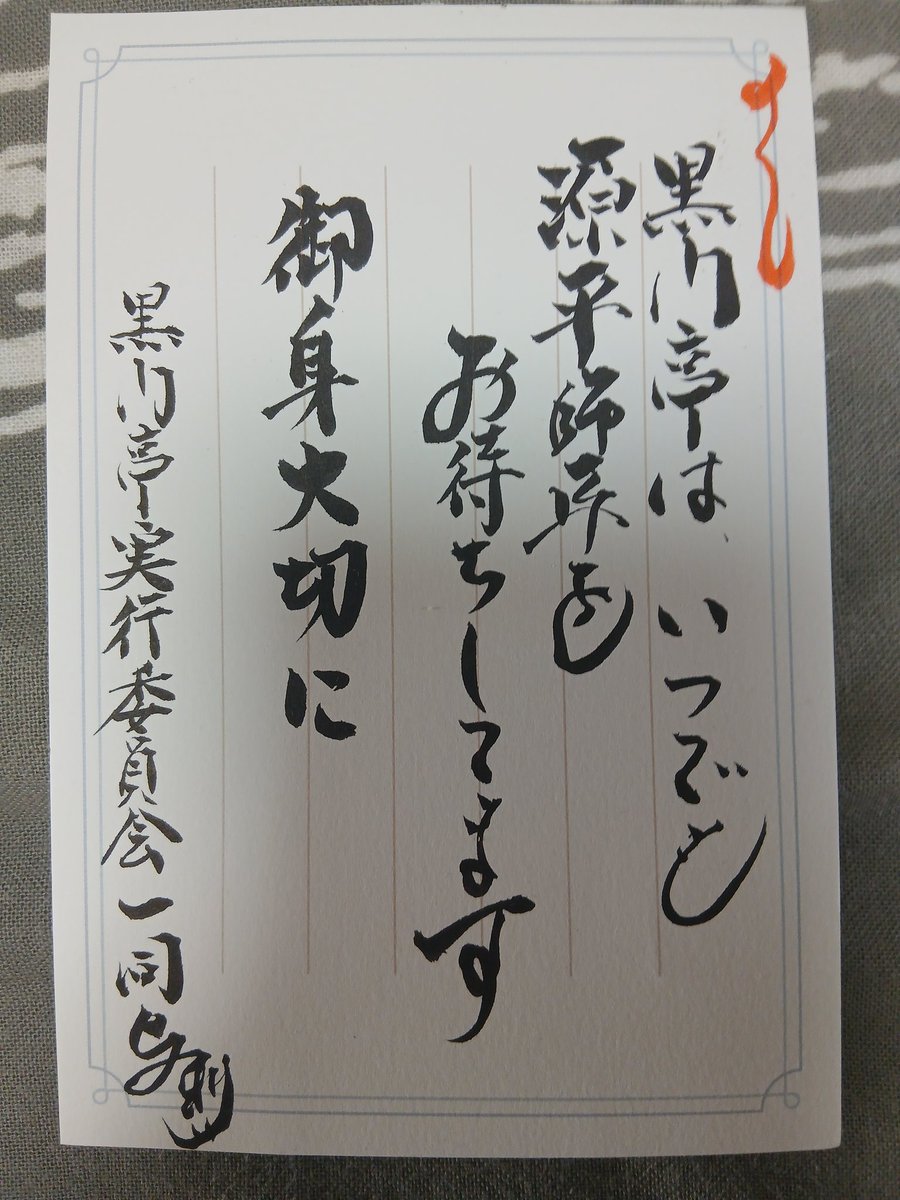 黒川亭は、いつでも
源平師匠を
お待ちしてます
御身大切に
黒川亭実行委員会一同